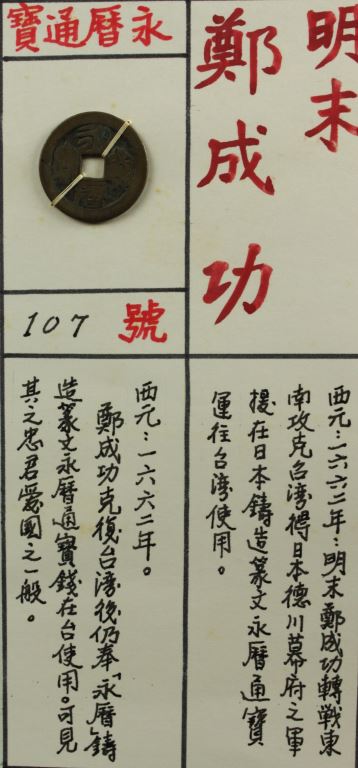 明末
鄭成功
永曆通寶
107 號
西元：一六六二年：明末鄭成功轉戰東
南攻克台灣得日本德川幕府之軍
援在日本鑄造篆文永曆通寶
運往台灣使用。
西元：一六六二年。
鄭成功克復台湾後仍奉「永曆」鑄
造篆文永曆通寶錢在台使用。可見
其之忠君愛國之一般。